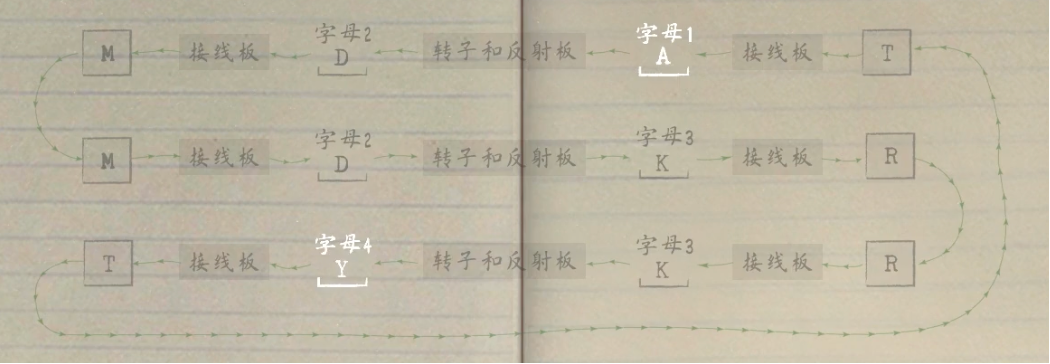 M 接线板 字母2 D 转子和反射板 字母1 A 接线板 T
M 接线板 字母2 D 转子和反射板 字母3 K 接线板 R
T 接线板 字母4 Y 转子和反射板 字母3 K 接线板 R